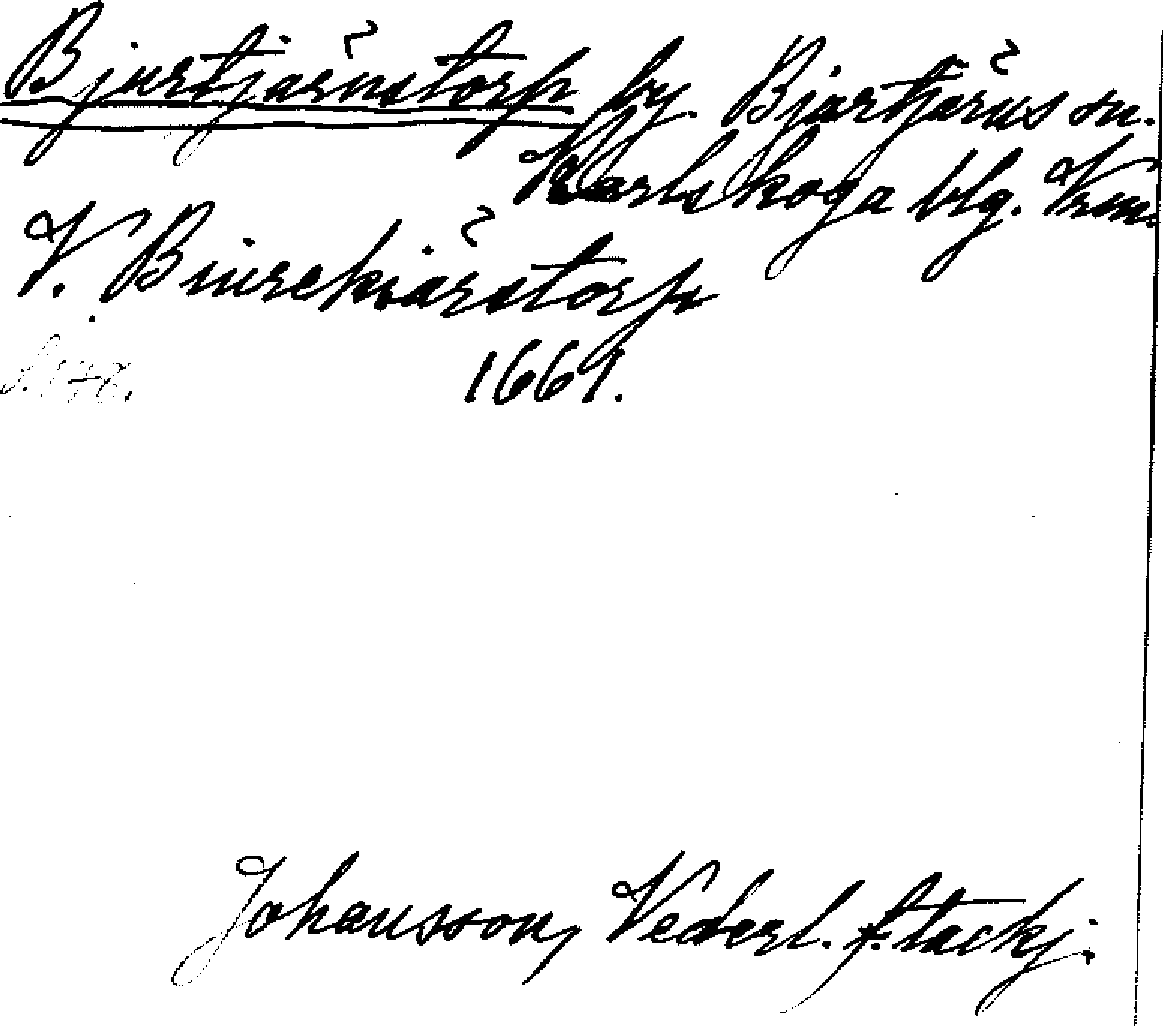 Bjurtjärnstorp by. Bjurtjärns sn.
Karlskoga blg. Vrm.
V. Biurekiärstorp
1661.
Johansson, Vederl. f. tackj.